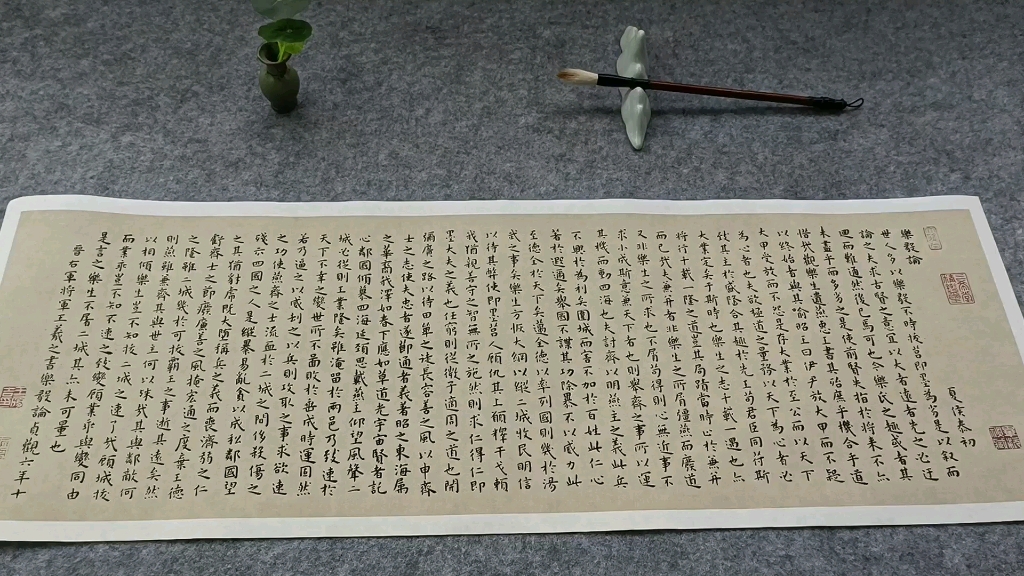 樂毅論 夏侯泰初
世人多以樂毅不時拔莒即墨為劣是以叙而
論之夫求古賢之意宜以大者遠者先之必迂
迴而難通然後已焉可也今樂氏之趣或者其
未盡乎而多劣之是使前賢失指於將来不亦
惜哉觀樂生遺燕惠王書其殆庶乎機合乎道
以終始者與其喻昭王曰伊尹放大甲而不疑
大甲受放而不怨是存大業於至公而以天下
為心者也夫欲極道之量務以天下為心者必
致其主於盛隆合其趣於先王苟君臣同符斯
大業定矣于斯時也樂生之志千載一遇也亦
將行千載一隆之道豈其局蹟當時止於兼并
而已哉夫兼并者非樂生之所屑彊燕而廢道
又非樂生之所求也不屑苟得則心無近事不
求小成斯意兼天下者也則舉齊之事所以運
其機而動四海也夫討齊以明燕主之義此兵
不興於為利矣圍城而害不加於百姓此仁心
著於遐邇矣舉國不謀其功除暴不以威力此
至德全於天下矣邁全德以率列國則幾於湯
武之事矣樂生方恢大綱以縱二城收民明信
以待其弊使即墨莒人顧仇其上願釋干戈賴
我猶親善守之智無所之施然則求仁得仁即
墨大夫之義也任窮則從微子適周之道也開
彌廣之路以待田單之徒長容善之風以申齊
士之志使夫忠者遂節通者義著昭之東海屬
之華裔我澤如春下應如草道光宇宙賢者託
心鄰國傾慕四海延頸思戴燕主仰望風聲二
城必從則王業隆矣雖淹留於兩邑乃致速於
天下不幸之變世所不啚敗於垂成時運固然
若乃逼之以威劫之以兵則攻取之事求欲速
之功使燕齊之士流血於二城之間侈殺傷之
殘示四國之人是縱暴易亂貪以成私鄰國望
之其猶豺虎既大墮稱兵之義而喪濟弱之仁
虧齊士之節廢廉善之風掩宏通之度棄王德
之隆雖二城幾於可拔霸王之事逝其遠矣然
則燕雖兼齊其與世主何以殊哉其與鄰敵何
以相傾樂生豈不知拔二城之速了哉顧城拔
而業乖豈不知不速之致變顧業乖與變同由
是言之樂生不屠二城其亦未可量也
晉右將軍王羲之書樂毅論貞觀六年十